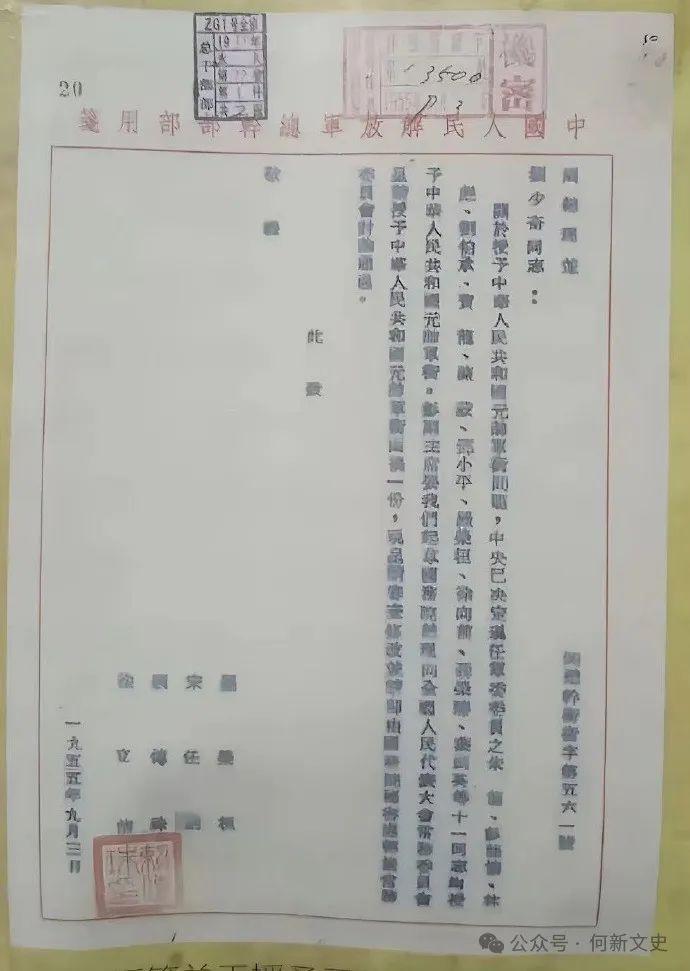 20
總干部部
機密
3500
中國人民解放軍總幹部部用箋
總幹銜字第五六一號
周總理並
劉少奇同志：
關於授予中華人民共和國元帥軍銜問題，中央已決定現任軍委委員之朱 德、彭德懷、林
彪、劉伯承、賀 龍、陳 毅、鄧小平、羅榮桓、徐向前、聶榮臻、葉劍英等十一同志均授
予中華人民共和國元帥軍銜。彭副主席要我們起草國務院總理向全國人民代表大會常務委員會
建議授予中華人民共和國元帥軍銜 一份，現呈請審查修改並請即由國務院秘書處轉提常務
委員會討論通過。
此致
敬禮
羅榮桓
宋任窮
賴傳珠
徐立清
一九五五年九月三日
公众号·何新文史